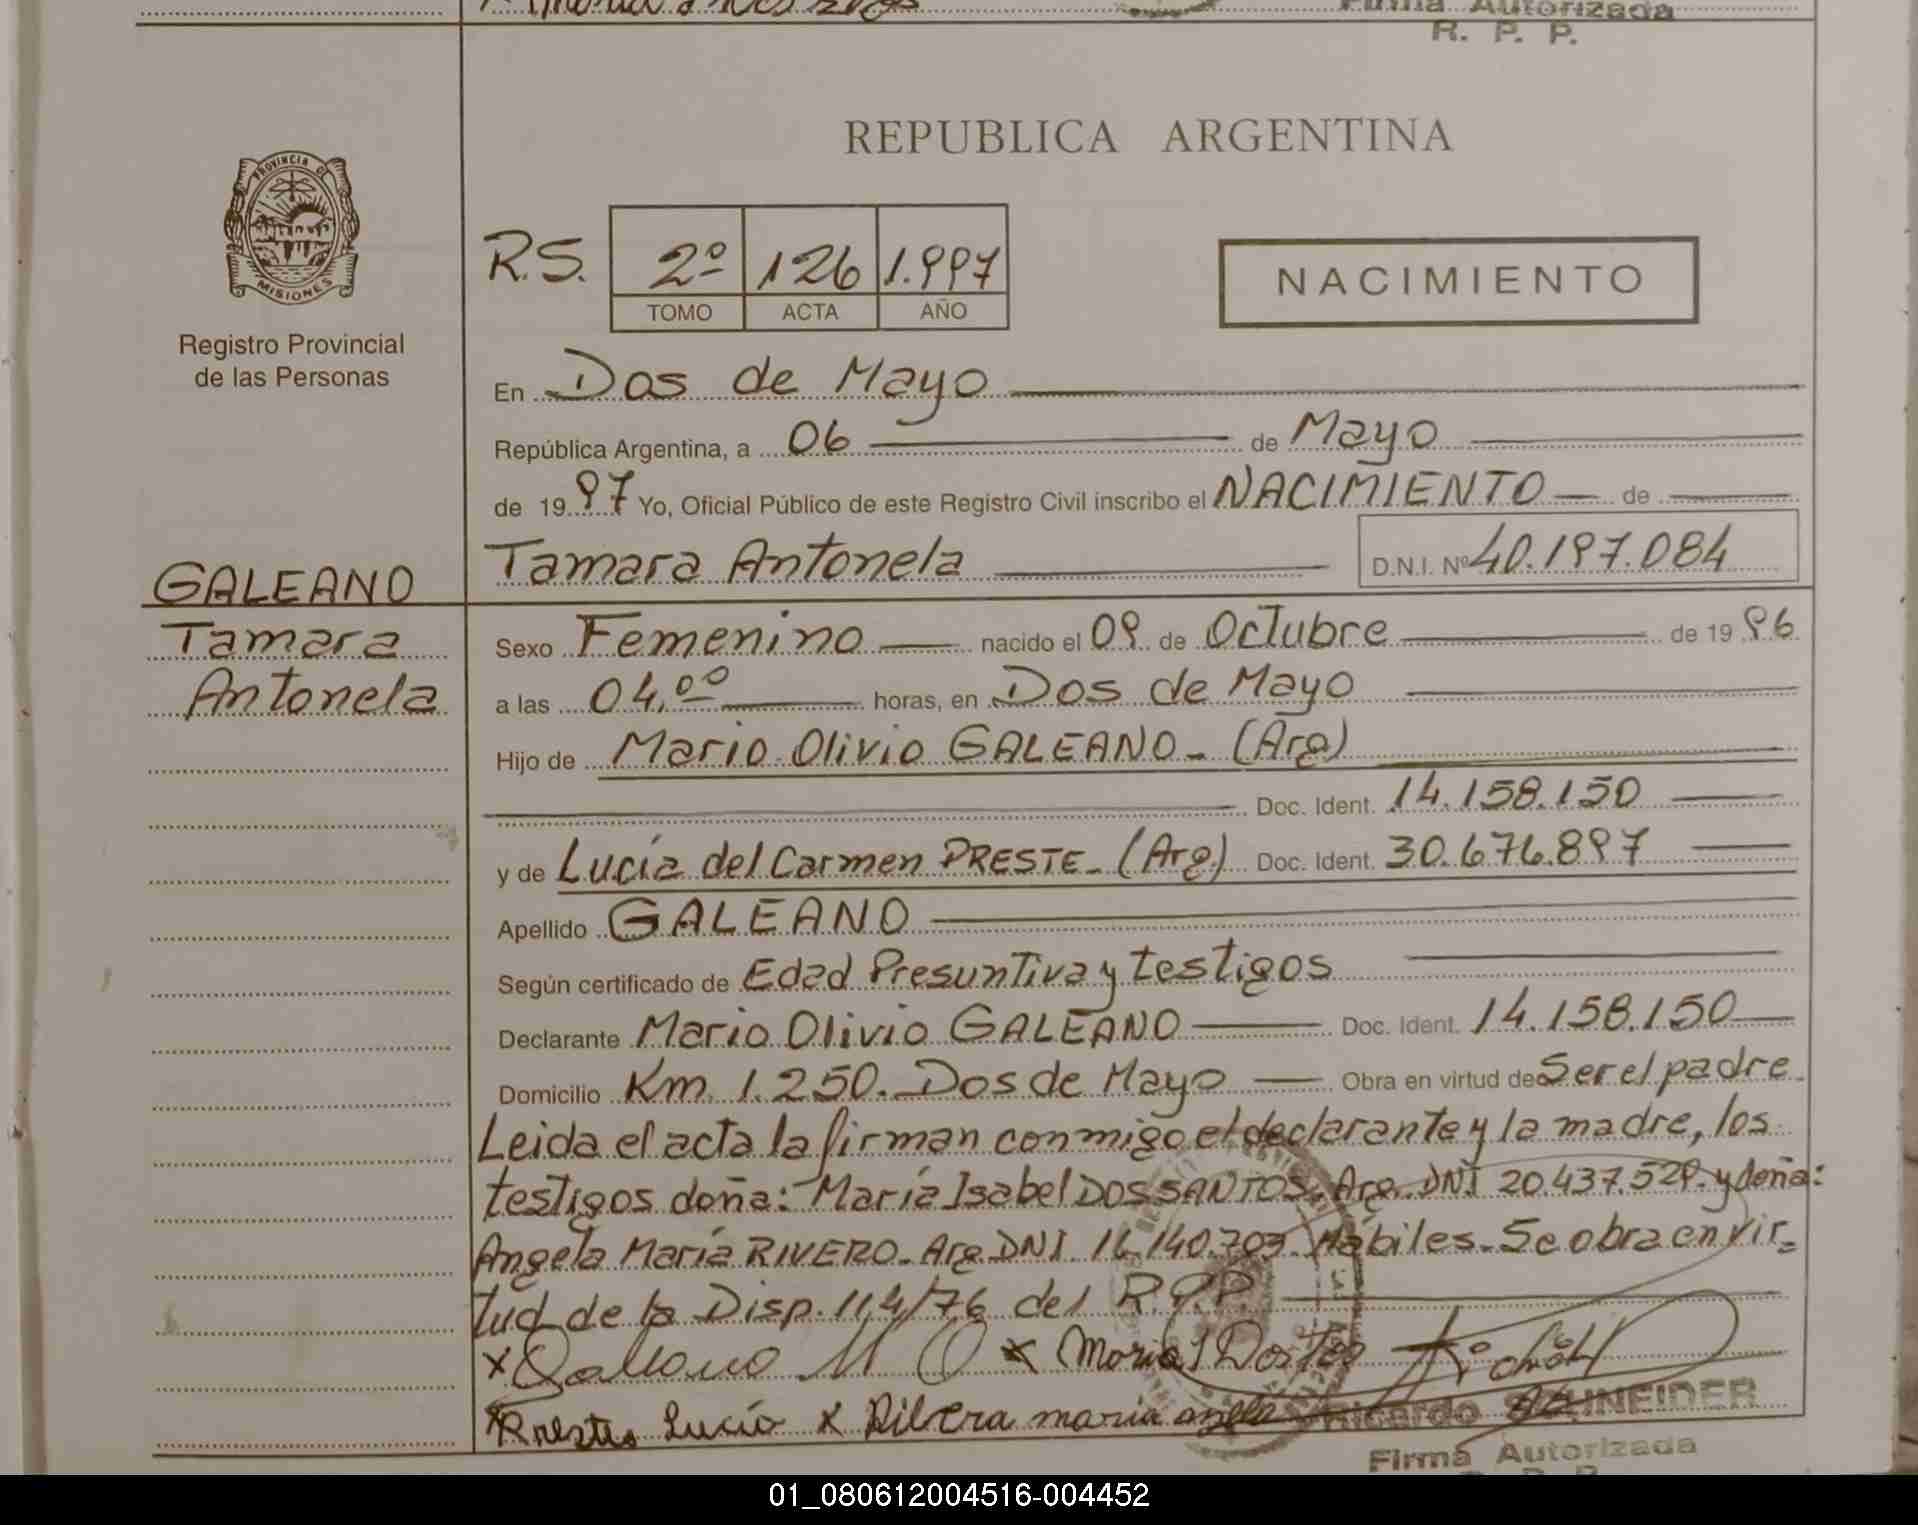 Firma Autorizada
R. P. P.
PROVINCIA DE
MISIONES
Registro Provincial
de las Personas
REPUBLICA ARGENTINA
R.S. 2º 126 1.997
TOMO ACTA AÑO
NACIMIENTO
En Dos de Mayo
República Argentina, a 06 de Mayo
de 1997 Yo, Oficial Público de este Registro Civil inscribo el NACIMIENTO de
Tamara Antonela D.N.I. Nº 40.197.084
GALEANO
Tamara
Antonela
Sexo Femenino nacido el 09 de Octubre de 1996
a las 04,00 horas, en Dos de Mayo
Hijo de Mario Olivio GALEANO - (Arg)
Doc. Ident. 14.158.150
y de Lucía del Carmen PRESTE - (Arg.) Doc. Ident. 30.676.897
Apellido GALEANO
Según certificado de Edad Presuntiva y testigos
Declarante Mario Olivio GALEANO Doc. Ident. 14.158.150
Domicilio Km. 1.250. Dos de Mayo Obra en virtud de Ser el padre
Leida el acta la firman conmigo el declarante y la madre, los
testigos doña: María Isabel DOS SANTOS. Arg. DNI 20.437.529. y doña:
Angela María RIVERO - Arg. DNI. 140.703. Hábiles. Se obra en vir=
tud de la Disp. 114/76 del R.P.P.
x Galeano M O x Maria I Dos
x Prestes Lucia x Ribera maria angela
Ricardo SCHNEIDER
Firma Autorizada
01_080612004516-004452